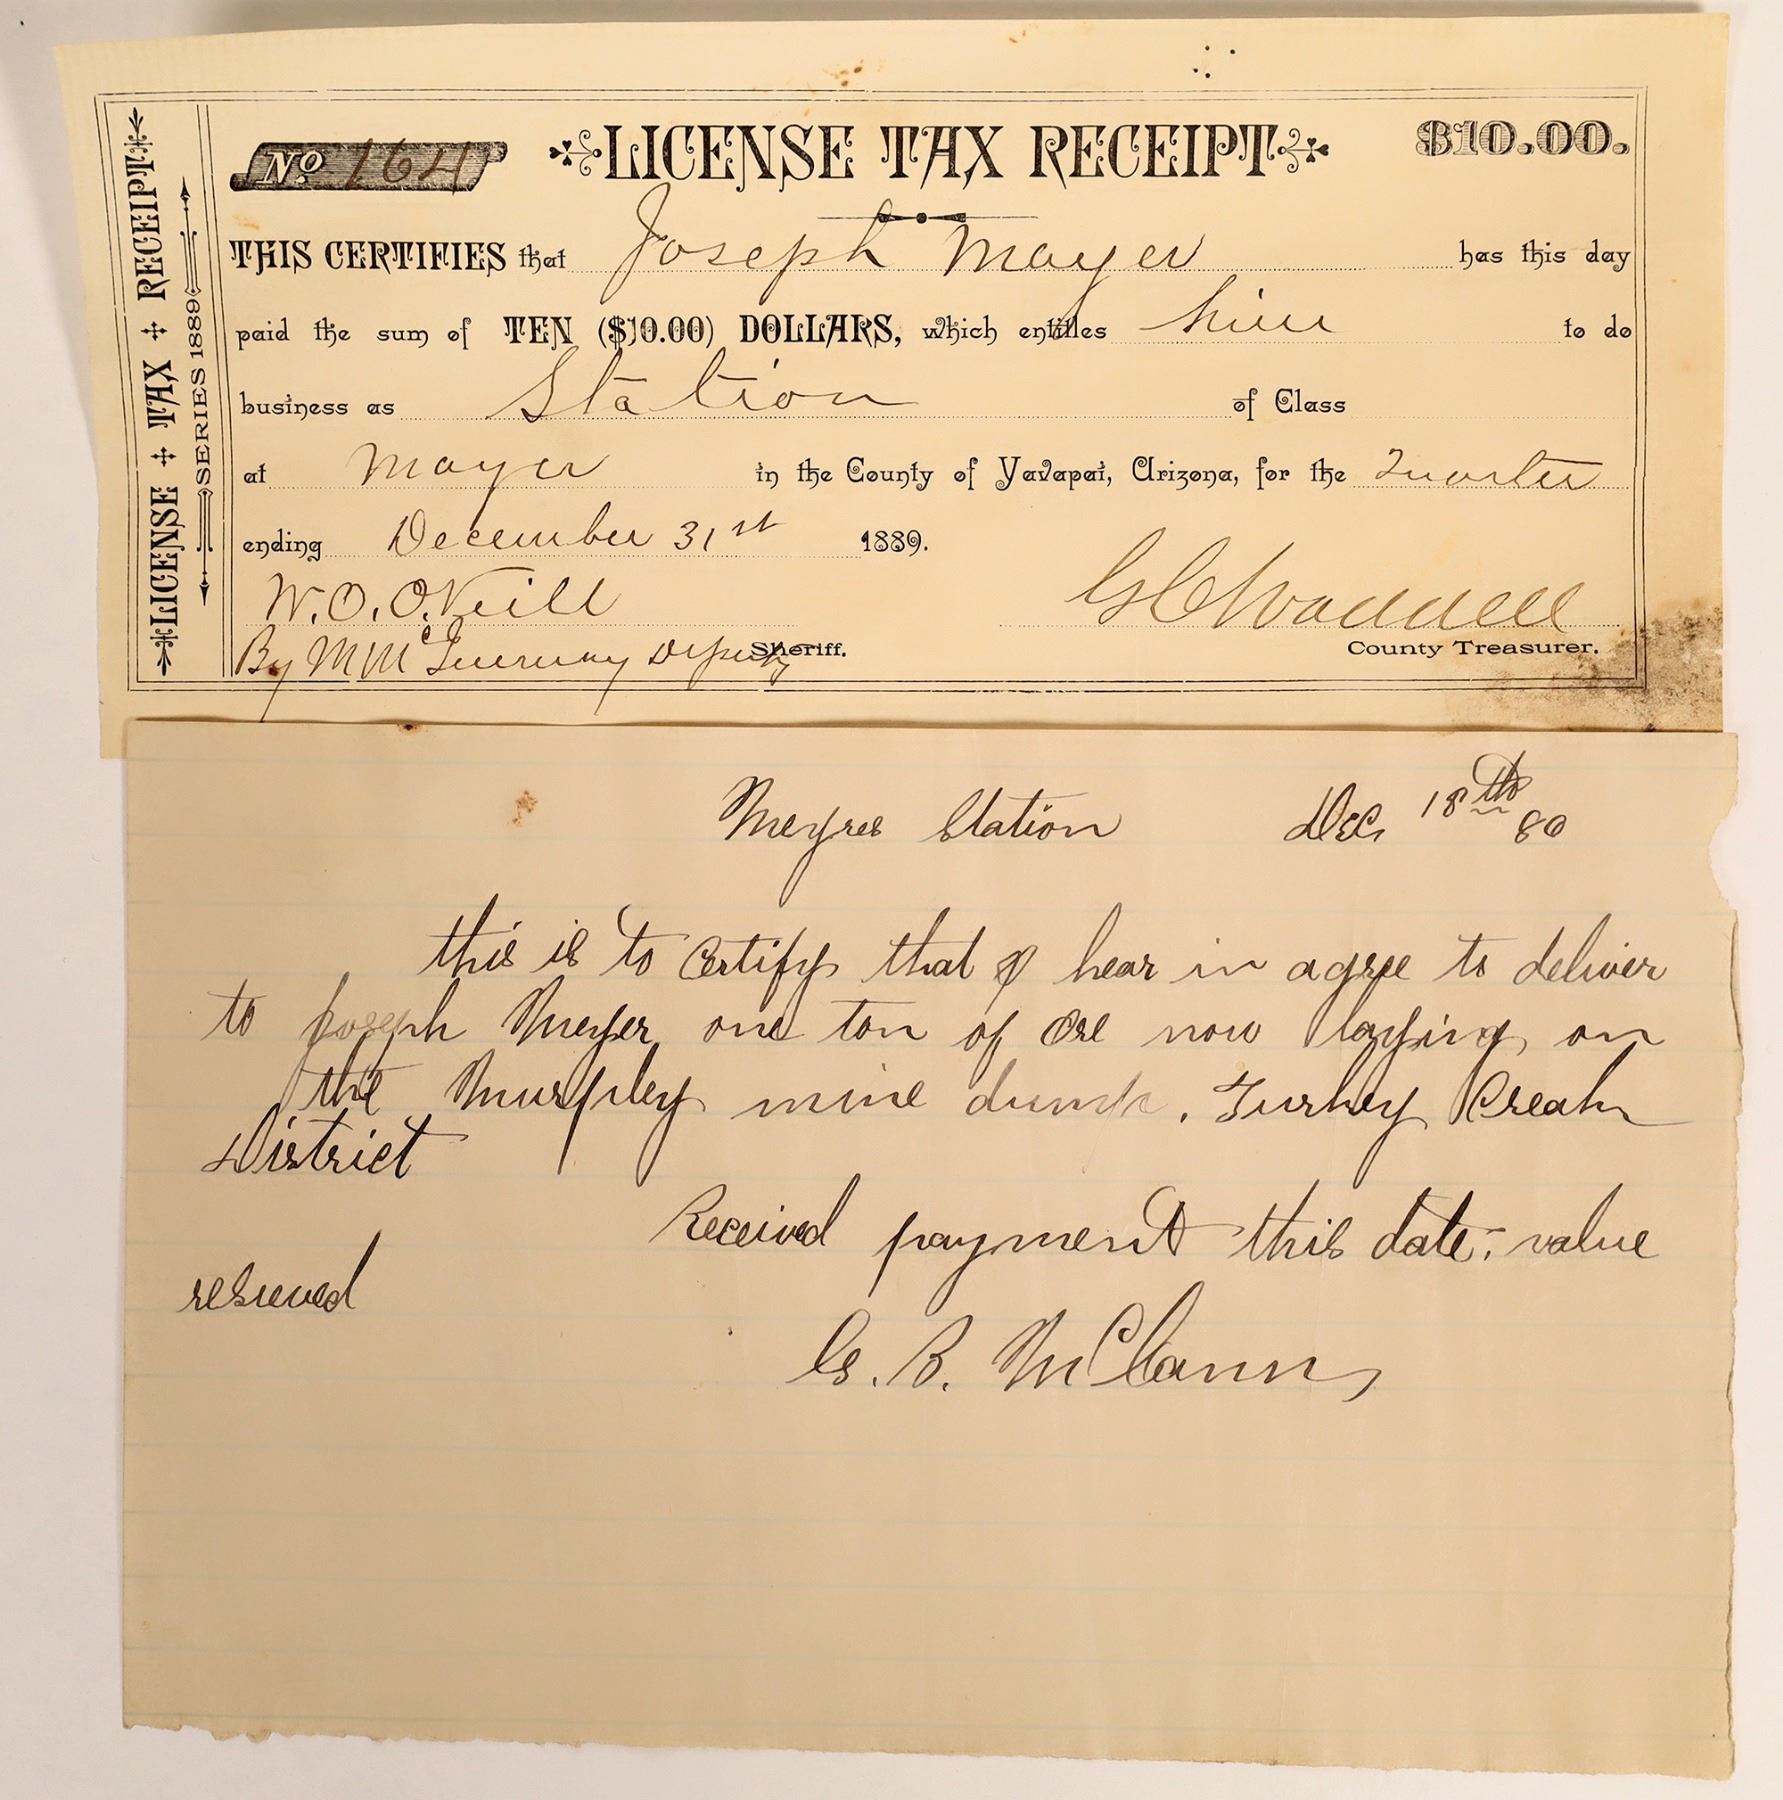 LICENSE TAX RECEIPT
SERIES 1889
No 164 LICENSE TAX RECEIPT $10.00.
THIS CERTIFIES that Joseph Mayer has this day
paid the sum of TEN ($10.00) DOLLARS, which entitles him to do
business as Station of Class
at Mayer in the County of Yavapai, Arizona, for the Quarter
ending December 31st 1889.
W. O. O'Neill
By M Mc Deputy Sheriff.
G C Waddell
County Treasurer.
Meyres Station Dec 18th 80
this is to certify that I hear in agree to deliver
to Joseph Meyer one ton of ore now laying on
the Murphey mine dump. Turkey Creak
District
Received payment this date. value
resieved
G. B. McCann